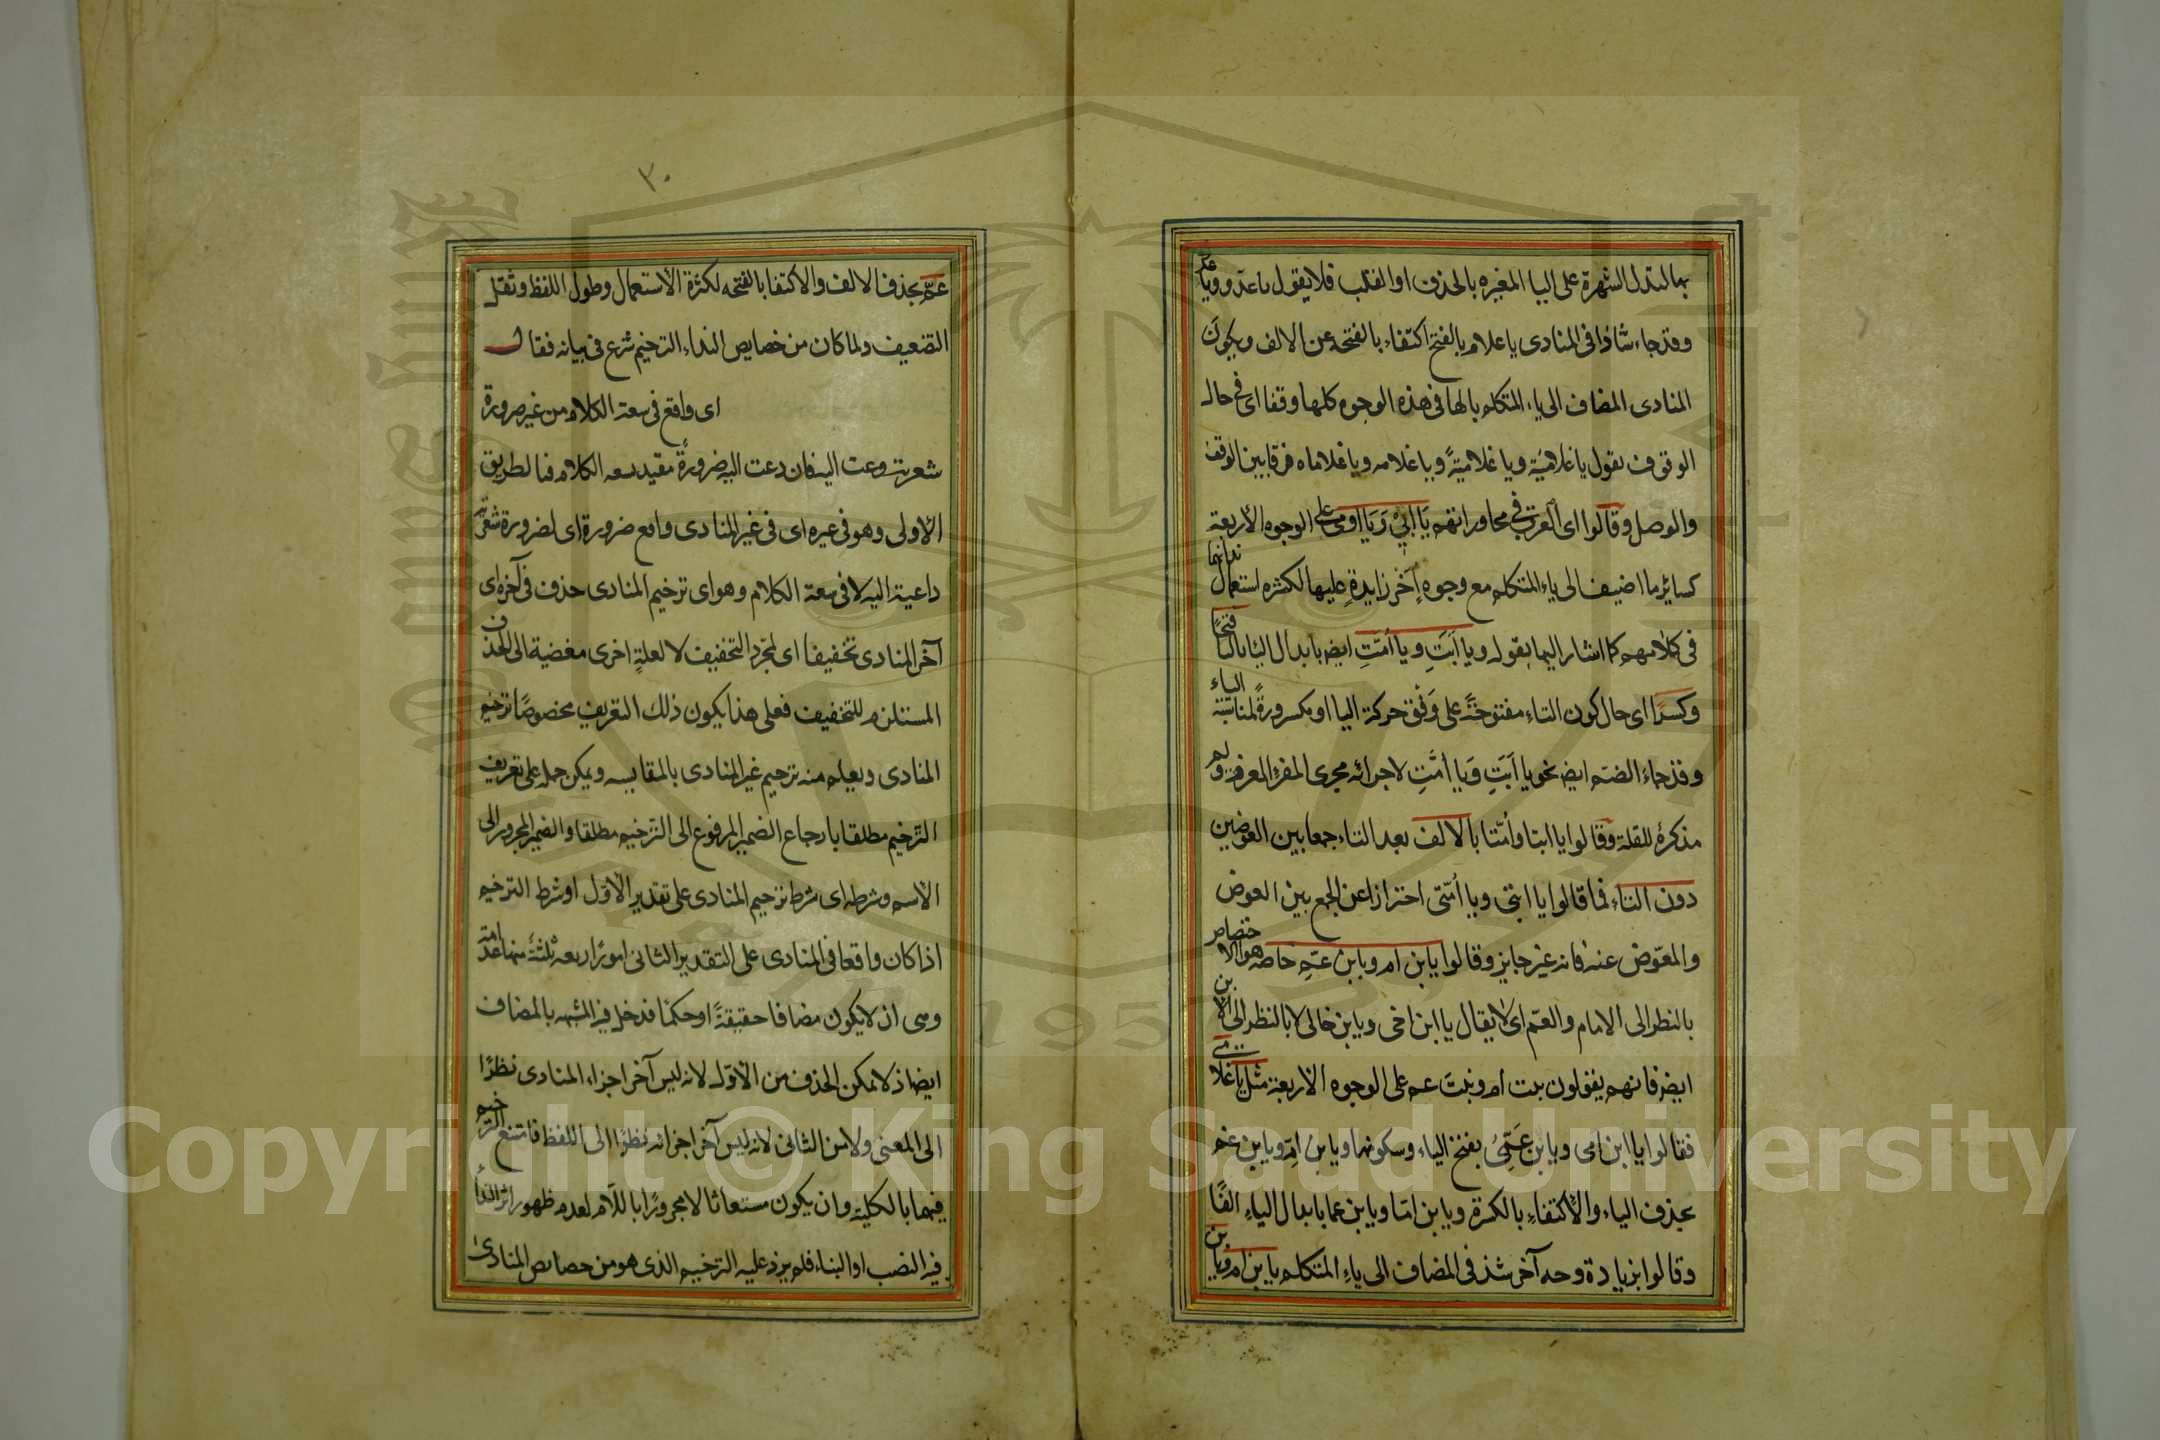 بها لتدل الشهرة على اليا المغيره بالحذف او القلب فلا يقول يا عدو ويا
وقد جاء شاذا فى المنادى يا غلام بالفتح اكتفاء بالفتحة عن الالف ويكون
المنادى المضاف الى ياء المتكلم بالها فى هذه الوجوه كلها وقفا اى فى حال
الوقف يقول يا غلاميه ويا غلاميه ويا غلامه ويا غلاماه فرقا بين الوقف
والوصل وقالوا اى العرب فى محاوراتهم يا ابى ويا امى على الوجوه الاربعة
كسائر ما اضيف الى ياء المتكلم مع وجوه اخر زايدة عليها لكثره استعمال ندائها
فى كلامهم كما اشار اليها بقوله ويا ابت ويا امت ايضا بابدال اليا بالتا فتحا
وكسرا اى حال كون التاء مفتوحة على وفق حركة اليا او مكسورة لمناسبة الياء
وقد جاء الضم ايضا نحو يا ابت ويا امت لاجرائه مجرى المفرد المعرفة ولم
يذكره للقلة وقالوا يا ابتا وامتا بالالف بعد التاء جمعا بين العوضين
دون التاء فما قالوا يا ابتى ويا امتى احترازا عن الجمع بين العوض
والمعوض عنه فانه غير جايز وقالوا يا بن ام ويا بن عم خاصة هو الاختصاص
بالنظر الى الام والعم اى لا يقال يا ابن اخى ويا بن خالى لا بالنظر الى الابن
ايضا فانهم يقولون بنت ام وبنت عم على الوجوه الاربعة مثل يا غلامى
فقالوا يا ابن امى ويا بن عمى بفتح الياء وسكونها ويا بن ام ويا بن عم
بحذف الياء والاكتفاء بالكسرة ويا بن اما ويا بن عما بابدال الياء الفا
وقالوا بزيادة وجه آخر شذ فى المضاف الى ياء المتكلم يا بن ام ويا بن
٣٠
عم بحذف الالف والاكتفا بالفتحه لكثرة الاستعمال وطول اللفظ وثقل
التضعيف ولما كان من خصايص النداء الترخيم شرع فى بيانه فقال
اى واقع فى سعة الكلام من غير ضرورة
شعرية دعت اليه فان دعت اليه ضرورة سعه الكلام فبالطريق
الاولى وهو فى غيره اى فى غير المنادى واقع ضرورة اى لضرورة شعرية
داعية اليه لا فى سعة الكلام وهو اى ترخيم المنادى حذف فى آخره اى
آخر المنادى تخفيفا اى لمجرد التخفيف لا لعلة اخرى مفضية الى الحذف
المستلزم للتخفيف فعلى هذا يكون ذلك التعريف مخصوصا بترخيم
المنادى ويعلم منه ترخيم غير المنادى بالمقايسه ويمكن حمله على تعريف
الترخيم مطلقا بارجاع الضمير المرفوع الى الترخيم مطلقا والضمير المجرور الى
الاسم وشرطه اى شرط ترخيم المنادى على تقدير الاول او شرط الترخيم
اذا كان واقعا فى المنادى على التقدير الثانى امور اربعه ثلثة منها عدمية
وهى ان لا يكون مضافا حقيقة او حكما فدخل فيه المشبه بالمضاف
ايضا اذ لا يمكن الحذف من الاول لانه ليس آخر اجزاء المنادى نظرا
الى المعنى ولا من الثانى لانه ليس آخر اجزائه نظرا الى اللفظ فامتنع الترخيم
فيهما بالكلية وان يكون مستغاثا لا مجرورا باللام لعدم ظهور اثر النداء
فيه النصب او البناء فلم يرد عليه الترخيم الذى هو من خصايص المنادى
Copyright © King Saud University
1957